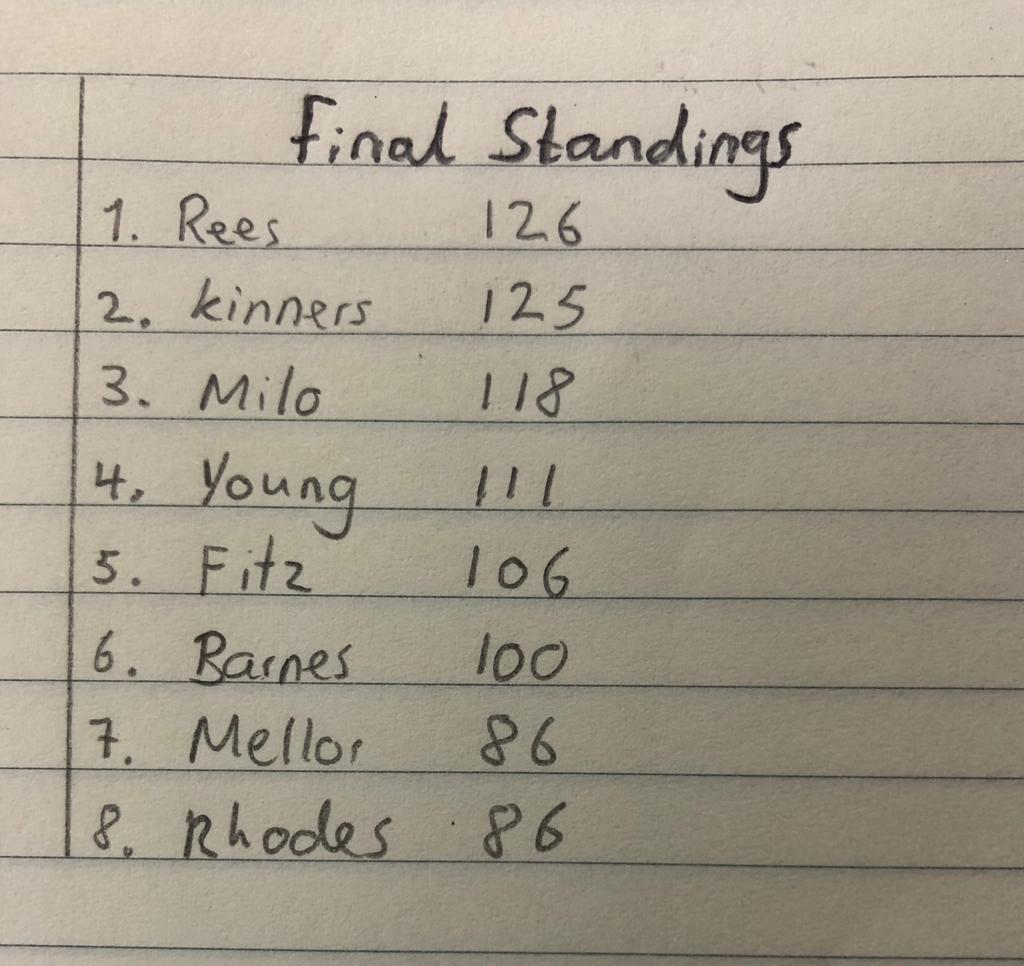 Final Standings
1. Rees 126
2. kinners 125
3. Milo 118
4. Young 111
5. Fitz 106
6. Barnes 100
7. Mellor 86
8. Rhodes 86